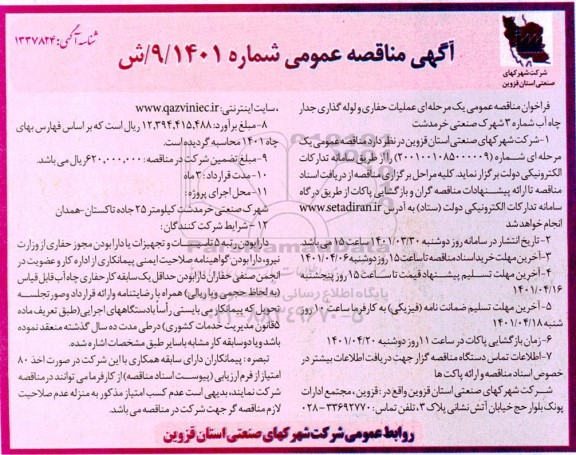 شناسه آگهی: ۱۳۳۷۸۲۴
آگهی مناقصه عمومی شماره ۹/۱۴۰۱/ش
شرکت شهرکهای
صنعتی استان قزوین
فراخوان مناقصه عمومی یک مرحله ای عملیات حفاری و لوله گذاری جدار
چاه آب شماره ۳ شهرک صنعتی خرمدشت
۱-شرکت شهرکهای صنعتی استان قزوین در نظر دارد مناقصه عمومی یک
مرحله ای شماره (۲۰۰۱۰۰۱۰۸۵۰۰۰۰۰۹) را از طریق سامانه تدارکات
الکترونیکی دولت برگزار نماید. کلیه مراحل برگزاری مناقصه از دریافت اسناد
مناقصه تا ارائه پیشنهادات مناقصه گران و بازگشایی پاکات از طریق درگاه
سامانه تدارکات الکترونیکی دولت (ستاد) به آدرس www.setadiran.ir
انجام خواهد شد
۲- تاریخ انتشار در سامانه روز دوشنبه ۱۴۰۱/۰۳/۳۰ ساعت ۱۵ می باشد
۳-آخرین مهلت خرید اسناد مناقصه تا ساعت ۱۵ روز دوشنبه ۱۴۰۱/۰۴/۰۶
۴-آخرین مهلت تسلیم پیشنهاد قیمت تا ساعت ۱۵ روز پنجشنبه
۱۴۰۱/۰۴/۱۶
۵-آخرین مهلت تسلیم ضمانت نامه (فیزیکی) به کارفرما ساعت ۱۰ روز
شنبه ۱۴۰۱/۰۴/۱۸
۶- زمان بازگشایی پاکات در ساعت ۱۱ روز دوشنبه ۱۴۰۱/۰۴/۲۰
۷-اطلاعات تماس دستگاه مناقصه گزار جهت دریافت اطلاعات بیشتر در
خصوص اسناد مناقصه و ارائه پاکت ها
شرکت شهرکهای صنعتی استان قزوین واقع در: قزوین، مجتمع ادارات
پونک بلوار حج خیابان آتش نشانی پلاک ۳، تلفن تماس: ۳۳۶۹۲۷۷۰-۰۲۸
، سایت اینترنتی: www.qazviniec.ir
۸-مبلغ برآورد: ۱۲,۳۹۴,۴۱۵,۴۸۸ ریال است که بر اساس فهارس بهای
چاه ۱۴۰۱ محاسبه گردیده است.
۹-مبلغ تضمین شرکت در مناقصه: ۶۲۰,۰۰۰,۰۰۰ ریال می باشد.
۱۰-مدت قرارداد: ۳ ماه
۱۱-محل اجرای پروژه:
شهرک صنعتی خرمدشت کیلومتر ۲۵ جاده تاکستان-همدان
۱۲-شرایط شرکت کنندگان:
دارا بودن رتبه ۵ تاسیسات و تجهیزات یا دارا بودن مجوز حفاری از وزارت
نیرو، دارا بودن گواهینامه صلاحیت ایمنی پیمانکاری از اداره کار و عضویت در
انجمن صنفی حفاران دارا بودن حداقل یک سابقه کار حفاری چاه آب قابل قیاس
(به لحاظ حجمی و یا ریالی) همراه با رضایتنامه و ارائه قرارداد و صورتجلسه
تحویل که پیمانکار می بایستی رأسا با دستگاههای اجرایی (طبق تعریف ماده
۵ قانون مدیریت خدمات کشوری) در طی مدت ده سال گذشته منعقد نموده
باشد و یا دو سابقه کار مشابه با سایر طبق مشخصات اشاره شده.
تبصره: پیمانکاران دارای سابقه همکاری با این شرکت در صورت اخذ ۸۰
امتیاز از فرم ارزیابی (پیوست اسناد مناقصه) از کارفرما می توانند در مناقصه
شرکت نمایند، بدیهی است عدم کسب امتیاز مذکور به منزله عدم صلاحیت
لازم مناقصه گر جهت شرکت در مناقصه می باشد.
روابط عمومی شرکت شهرکهای صنعتی استان قزوین